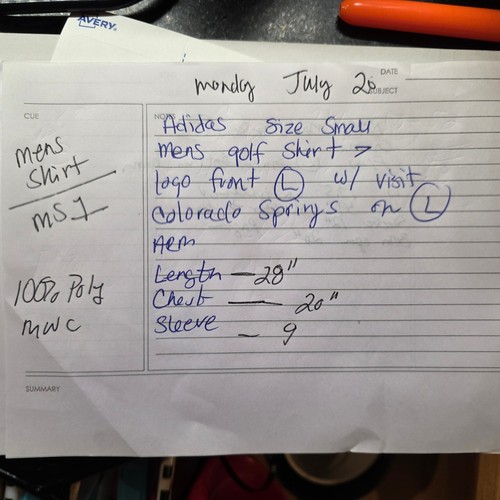 AVERY
DATE
monday July 20
SUBJECT
CUE
NOTES
Adidas Size Small
mens golf Shirt >
logo front L w/ visit
Colorado Springs on L
ARM
Length — 28"
Chest — 20"
Sleeve — 9
mens
Shirt
MS1
100% Poly
MWC
SUMMARY